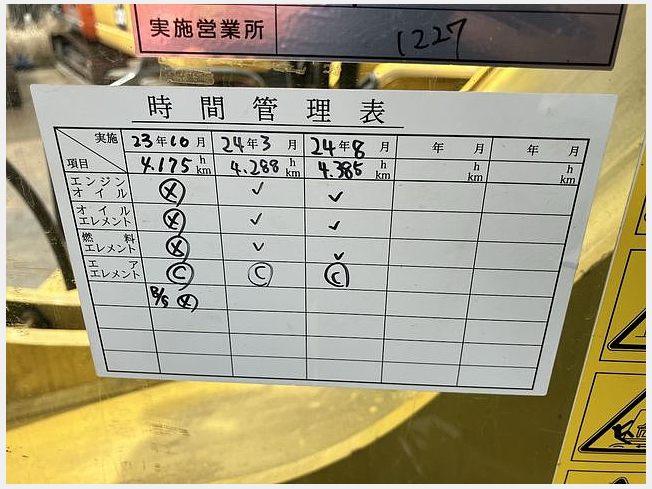 実施営業所 1227
時間管理表
実施 23年10月 24年3月 24年8月 年 月 年 月
項目 4.175 h km 4.288 h km 4.385 h km h km h km
エンジンオイル ⓧ ✓ ✓
オイルエレメント ⓧ ✓ ✓
燃料エレメント ⓧ ✓ ✓
エアエレメント Ⓒ Ⓒ Ⓒ
ⓧ